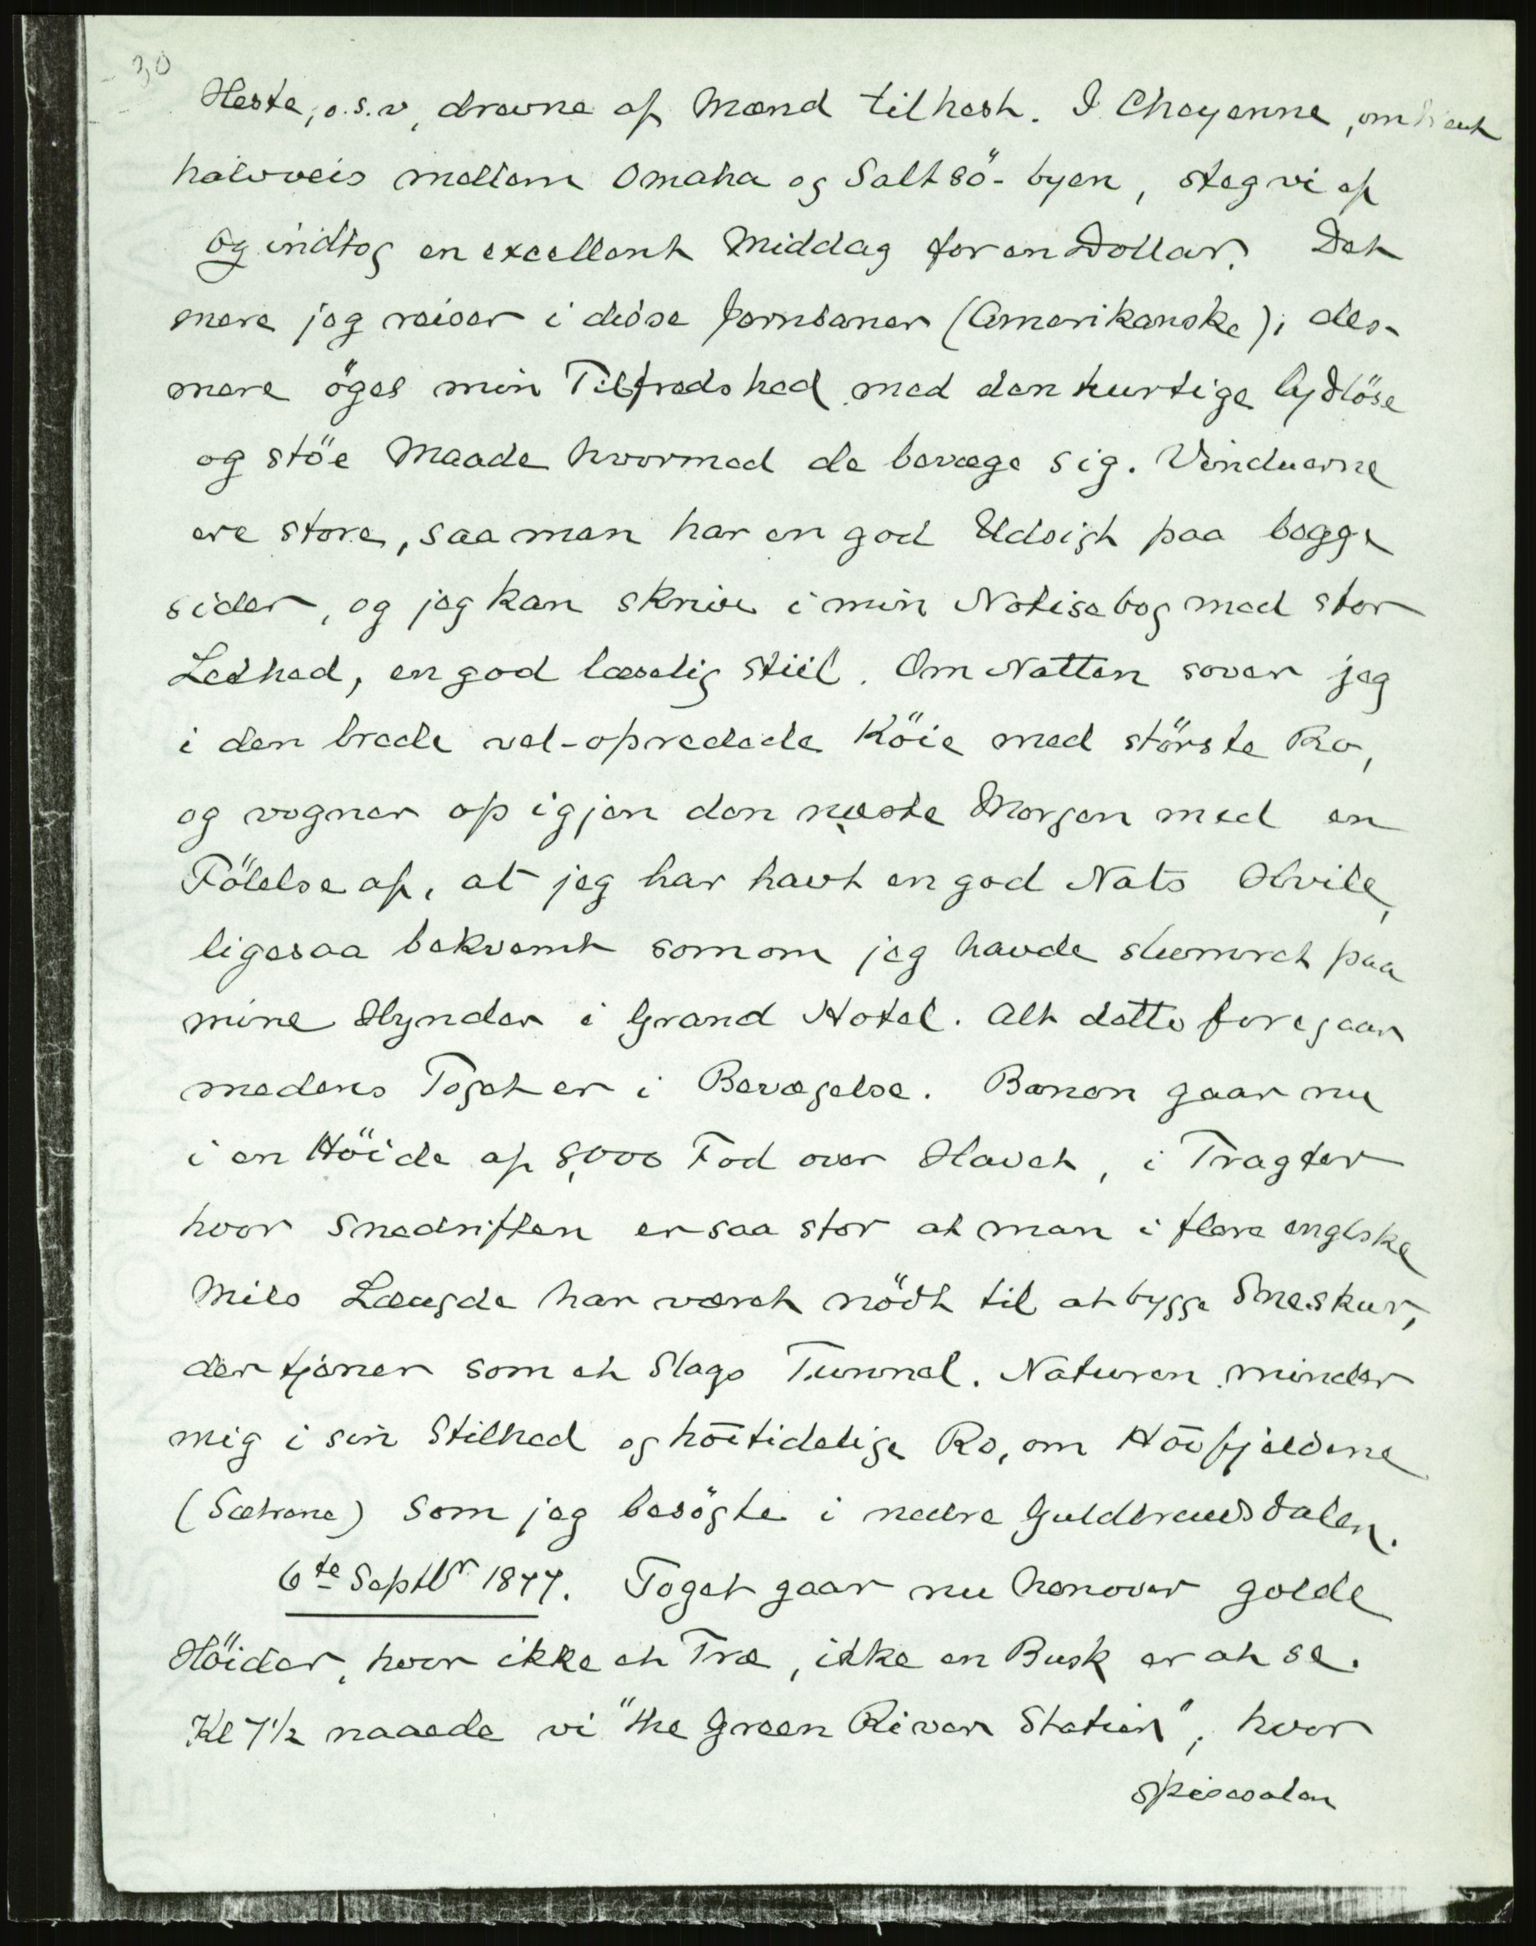 30
Heste, o.s.v, drevne af Mænd tilhest. I Cheyenne, omtrent
halvveis mellem Omaha og Saltsö-byen, steg vi af
og indtog en excellent Middag for en Dollar. Det
mere jeg reiser i disse Jernbaner (Amerikanske), des-
mere öges min Tilfredshed med den hurtige lydlöse
og stöe Maade hvormed de bevæge sig. Vinduerne
ere store, saa man har en god Udsigt paa begge
sider, og jeg kan skrive i min Notisebog med stor
Lethed, en god læselig Stiil. Om Natten sover jeg
i den brede vel-opredede Köie med störste Ro,
og vogner op igjen den næste Morgen med en
Fölelse af, at jeg har havt en god Nats Hvile,
ligesaa bekvemt som om jeg havde slumret paa
mine Hynder i Grand Hotel. Alt dette foregaar
medens Toget er i Bevægelse. Banen gaar nu
i en Höide af 8,000 Fod over Havet, i Tragter
hvor Snedriften er saa stor at man i flere engelske
Miles Længde har været nödt til at bygge Sneskur,
der tjener som et Slags Tunnel. Naturen minder
mig i sin Stilhed og höitidelige Ro, om Höifjeldene
(Sætrene) som jeg besögte i nedre Guldbrandsdalen.
6te Septbr 1877. Toget gaar nu henover golde
Höider, hvor ikke et Træ, ikke en Busk er at se.
Kl 7½ naaede vi "the Green River Station", hvor
Spisesalen